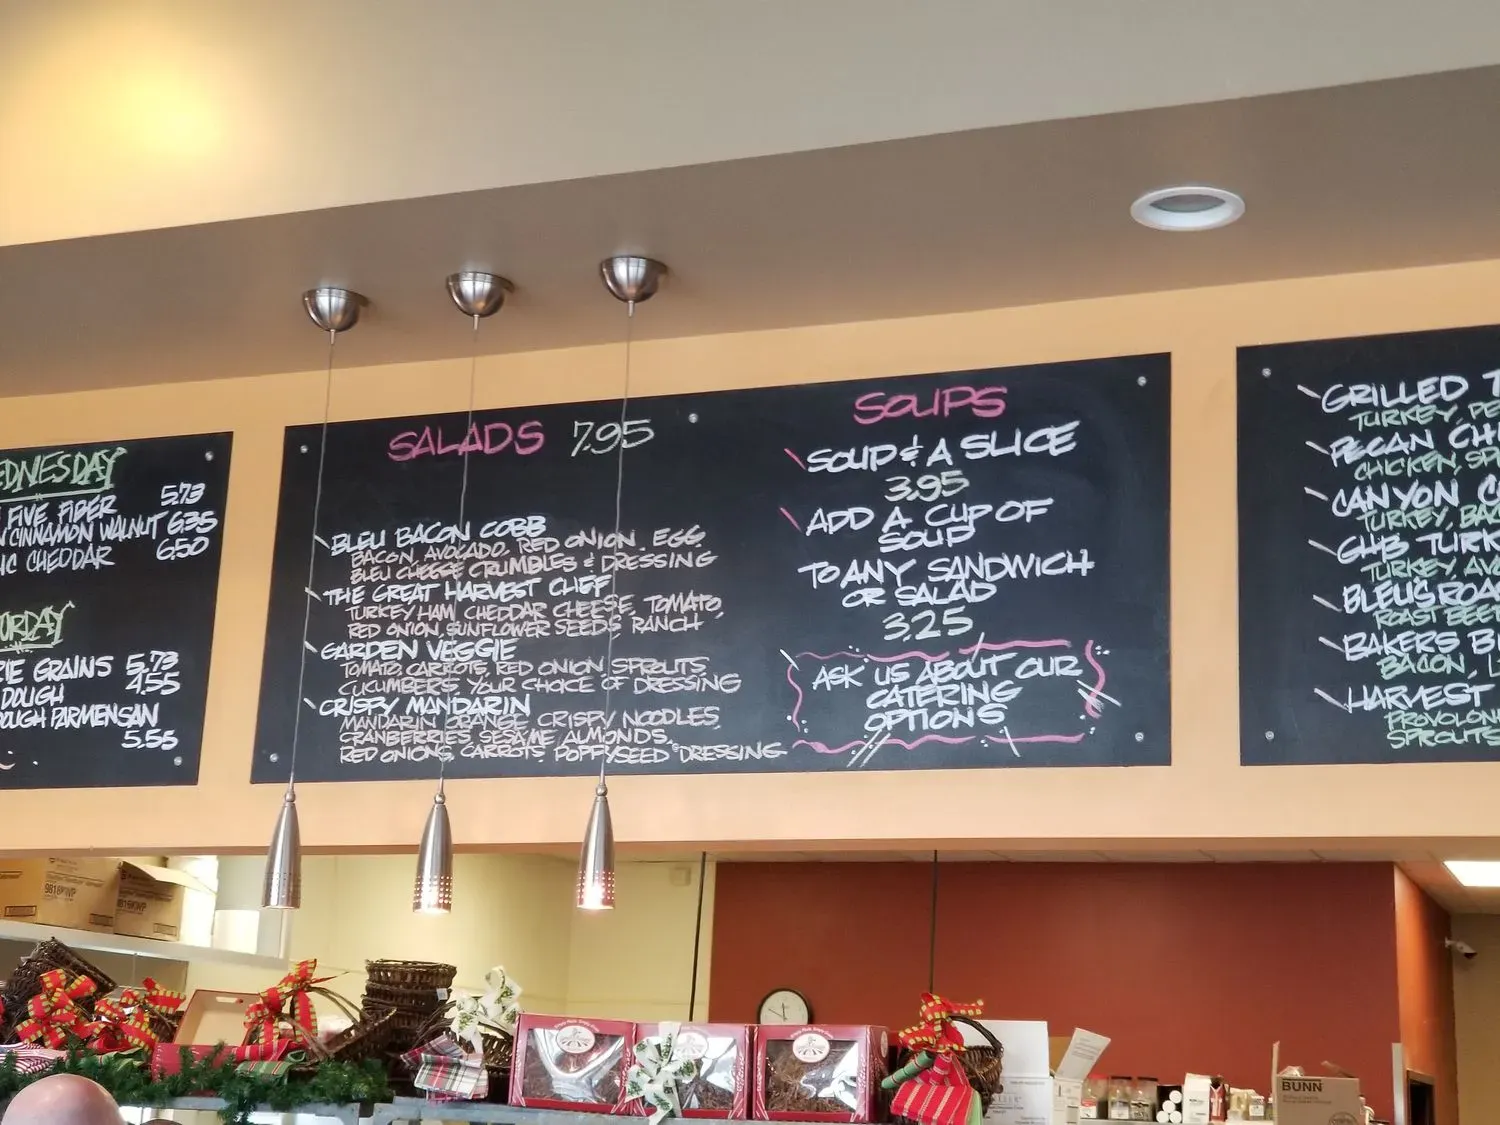 FIVE FIBER 5.73
CINNAMON WALNUT 6.35
CHEDDAR 6.50
GRAINS 5.73
DOUGH 4.55
PARMENSAN
5.55
SALADS 7.95
BLEU BACON COBB
BACON, AVOCADO, RED ONION, EGG
BLEU CHEESE CRUMBLES & DRESSING
THE GREAT HARVEST CHEF
TURKEY HAM, CHEDDAR CHEESE, TOMATO,
RED ONION, SUNFLOWER SEEDS, RANCH
GARDEN VEGGIE
TOMATO, CARROTS, RED ONION, SPROUTS
CUCUMBERS, YOUR CHOICE OF DRESSING
CRISPY MANDARIN
MANDARIN ORANGE, CRISPY NOODLES,
CRANBERRIES, SESAME ALMONDS,
RED ONIONS, CARROTS, POPPYSEED DRESSING
SOUPS
SOUP & A SLICE
3.95
ADD A CUP OF
SOUP
TO ANY SANDWICH
OR SALAD
3.25
ASK US ABOUT OUR
CATERING
OPTIONS
GRILLED
TURKEY,
PECAN
CHICKEN,
CANYON
TURKEY,
TURKEY,
BAKERS
BACON,
HARVEST
SPROUTS
BUNN